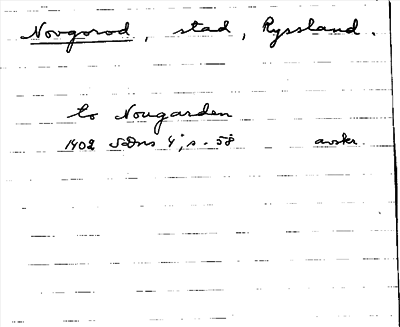 Novgorod, stad, Ryssland.
to Nougarden
1402 SDns 1, s. 58 avskr.